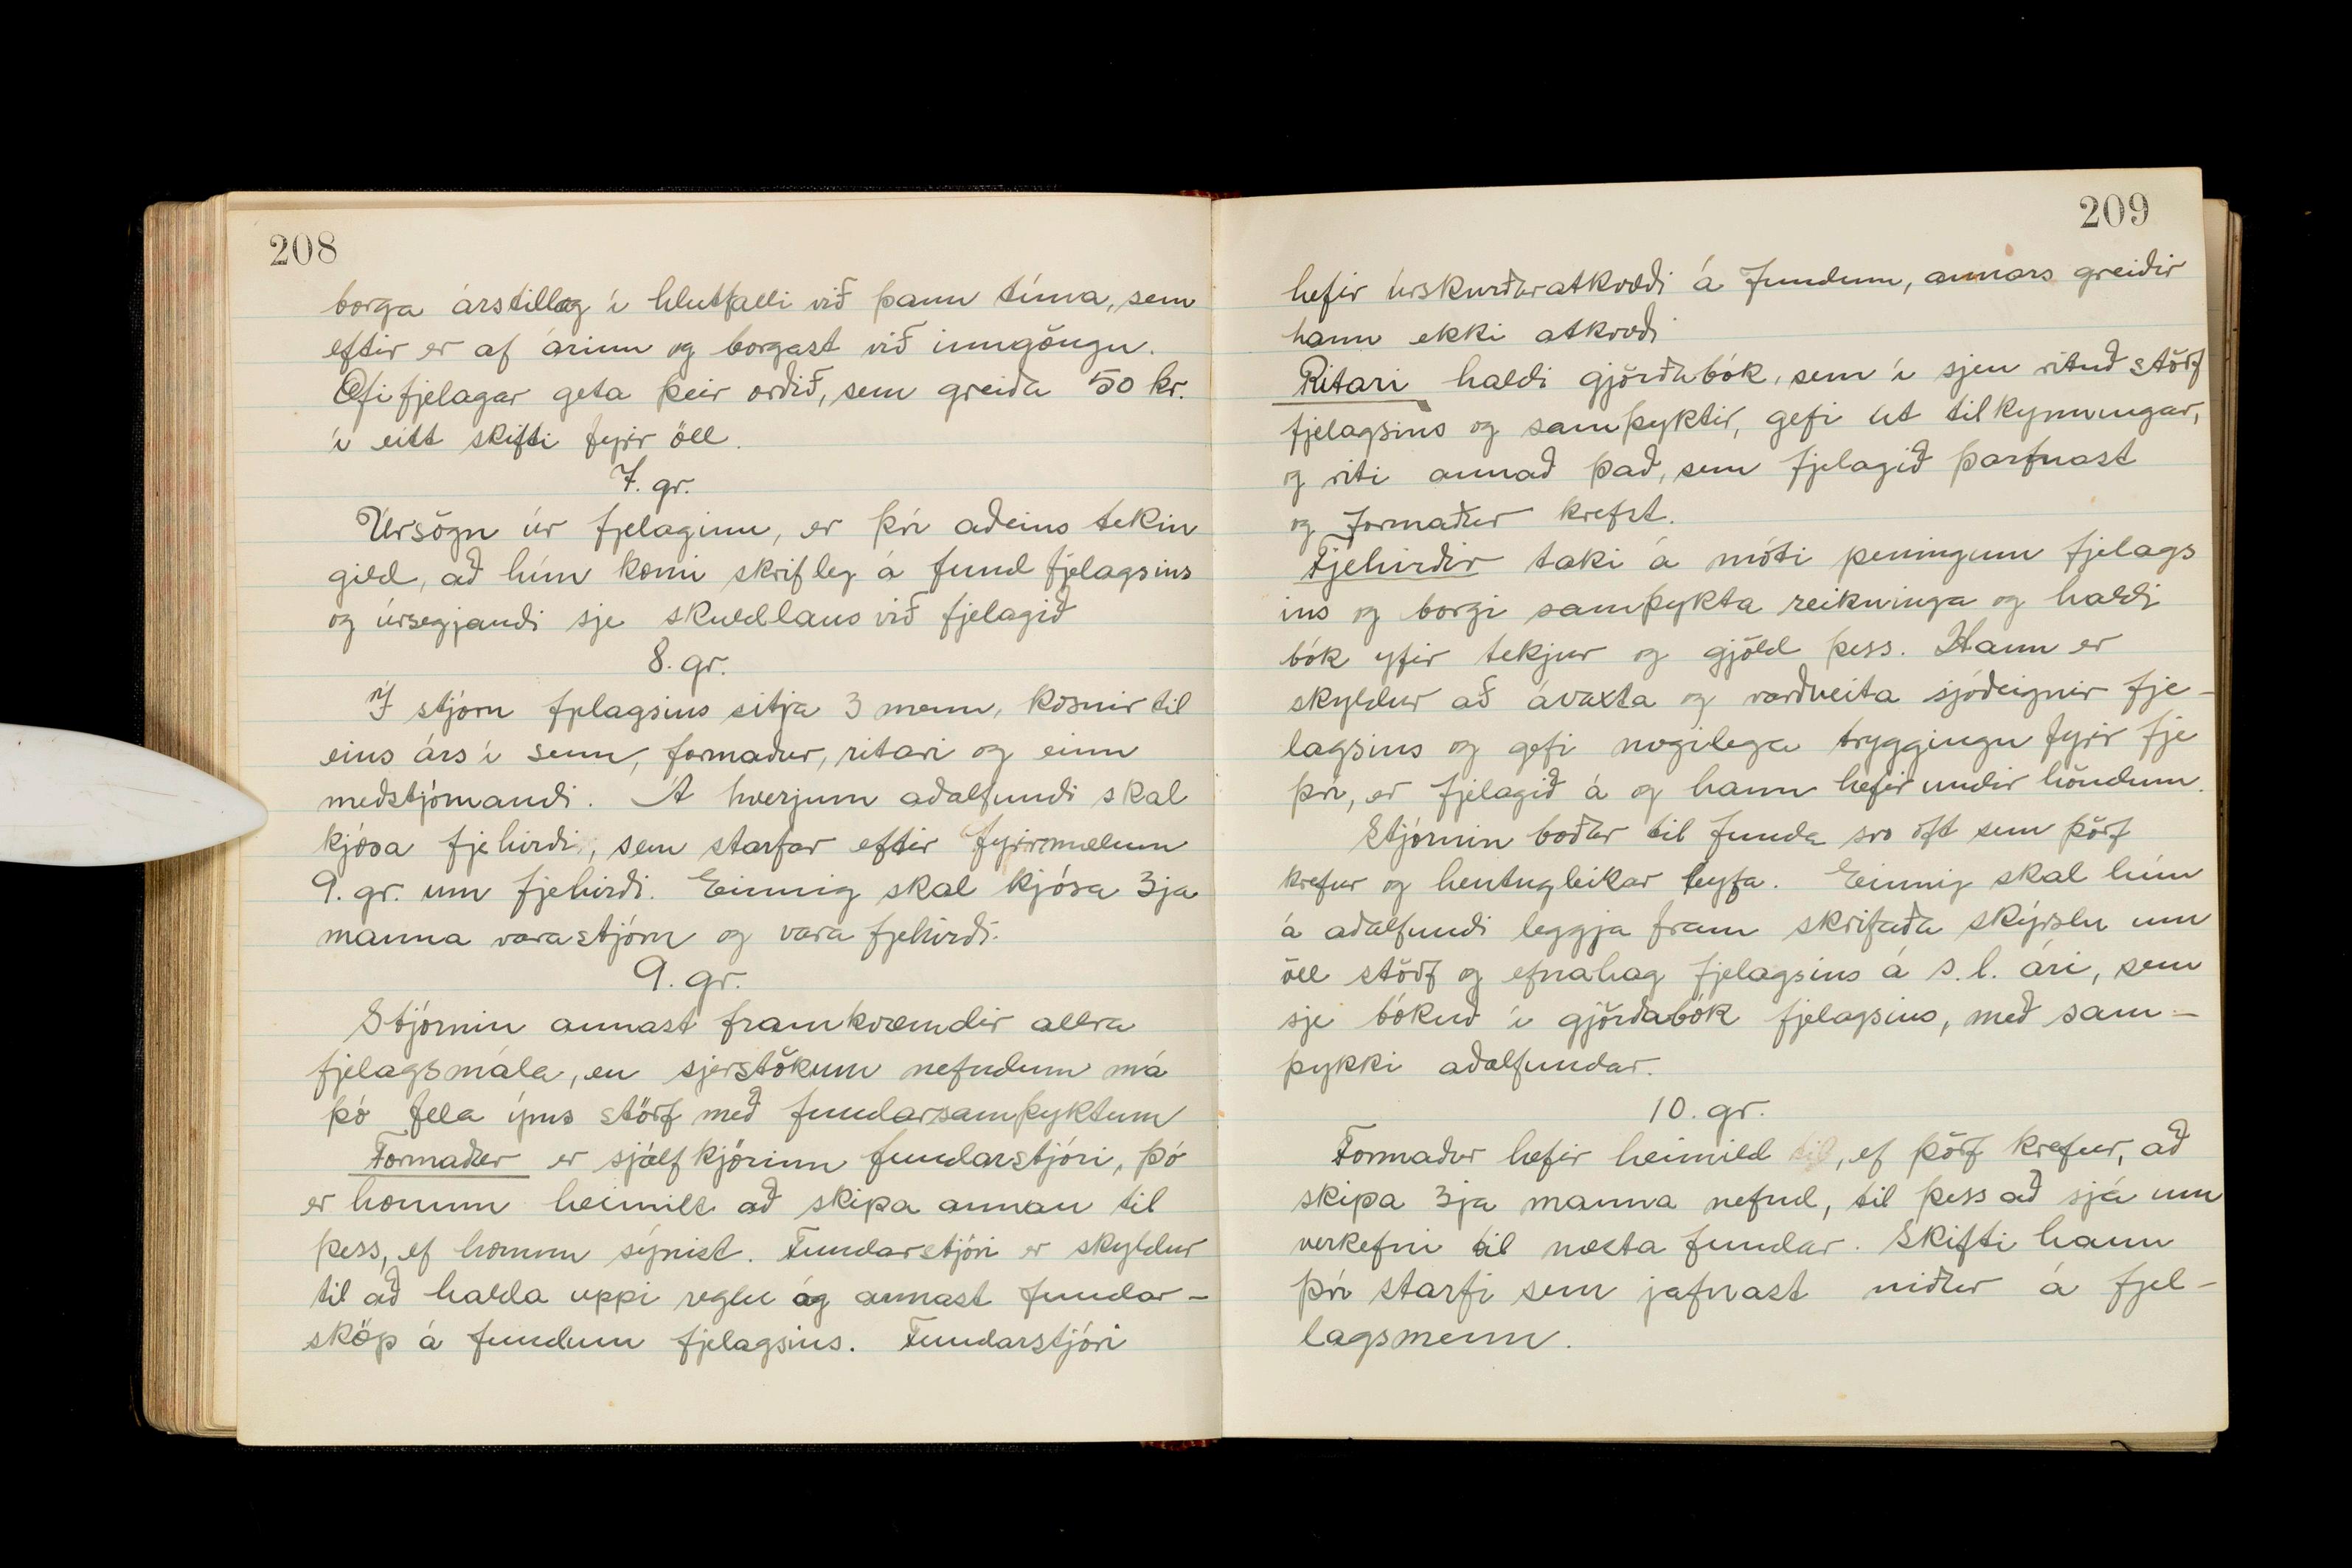 208
borga árstillag í hlutfalli við þann tíma, sem
eftir er af árinu og borgast við inngöngu.
Æfifjelagar geta þeir orðið, sem greiða 50 kr.
í eitt skifti fyrir öll.
7. gr.
Úrsögn úr fjelaginu, er því aðeins tekin
gild, að hún komi skrifleg á fund fjelagsins
og úrsegjandi sje skuldlaus við fjelagið
8. gr.
Í stjórn fjelagsins sitja 3 menn, kosnir til
eins árs í senn, formaður, ritari og einn
meðstjórnandi. Á hverjum aðalfundi skal
kjósa fjehirði, sem starfar eftir fyrirmælum
9. gr. um fjehirði. Einnig skal kjósa 3ja
manna varastjórn og vara fjehirði.
9. gr.
Stjórnin annast framkvæmdir allra
fjelagsmála, en sjerstökum nefndum má
þó fela ýms störf með fundarsamþyktum
Formaður er sjálfkjörinn fundarstjóri, þó
er honum heimilt að skipa annan til
þess, ef honum sýnist. Fundarstjóri er skyldur
til að halda uppi reglu og annast fundar-
sköp á fundum fjelagsins. Fundarstjóri
209
hefir úrskurðaratkvæði á fundum, annars greiðir
hann ekki atkvæði
Ritari haldi gjörðabók, sem í sjeu rituð störf
fjelagsins og samþyktir, gefi út tilkynningar,
og riti annað það, sem fjelagið þarfnast
og formaður krefst.
Fjehirðir taki á móti peningum fjelags
ins og borgi samþykta reikninga og haldi
bók yfir tekjur og gjöld þess. Hann er
skyldur að ávaxta og varðveita sjóðeignir fje-
lagsins og gefi nægilega tryggingu fyrir fje
því, er fjelagið á og hann hefir undir höndum.
Stjórnin boðar til funda svo oft sem þörf
krefur og hentugleikar leyfa. Einnig skal hún
á aðalfundi leggja fram skrifaða skýrslu um
öll störf og efnahag fjelagsins á s.l. ári, sem
sje bókuð í gjörðabók fjelagsins, með sam-
þykki aðalfundar.
10. gr.
Formaður hefir heimild til, ef þörf krefur, að
skipa 3ja manna nefnd, til þess að sjá um
verkefni til næsta fundar. Skifti hann
því starfi sem jafnast niður á fjel-
lagsmenn.